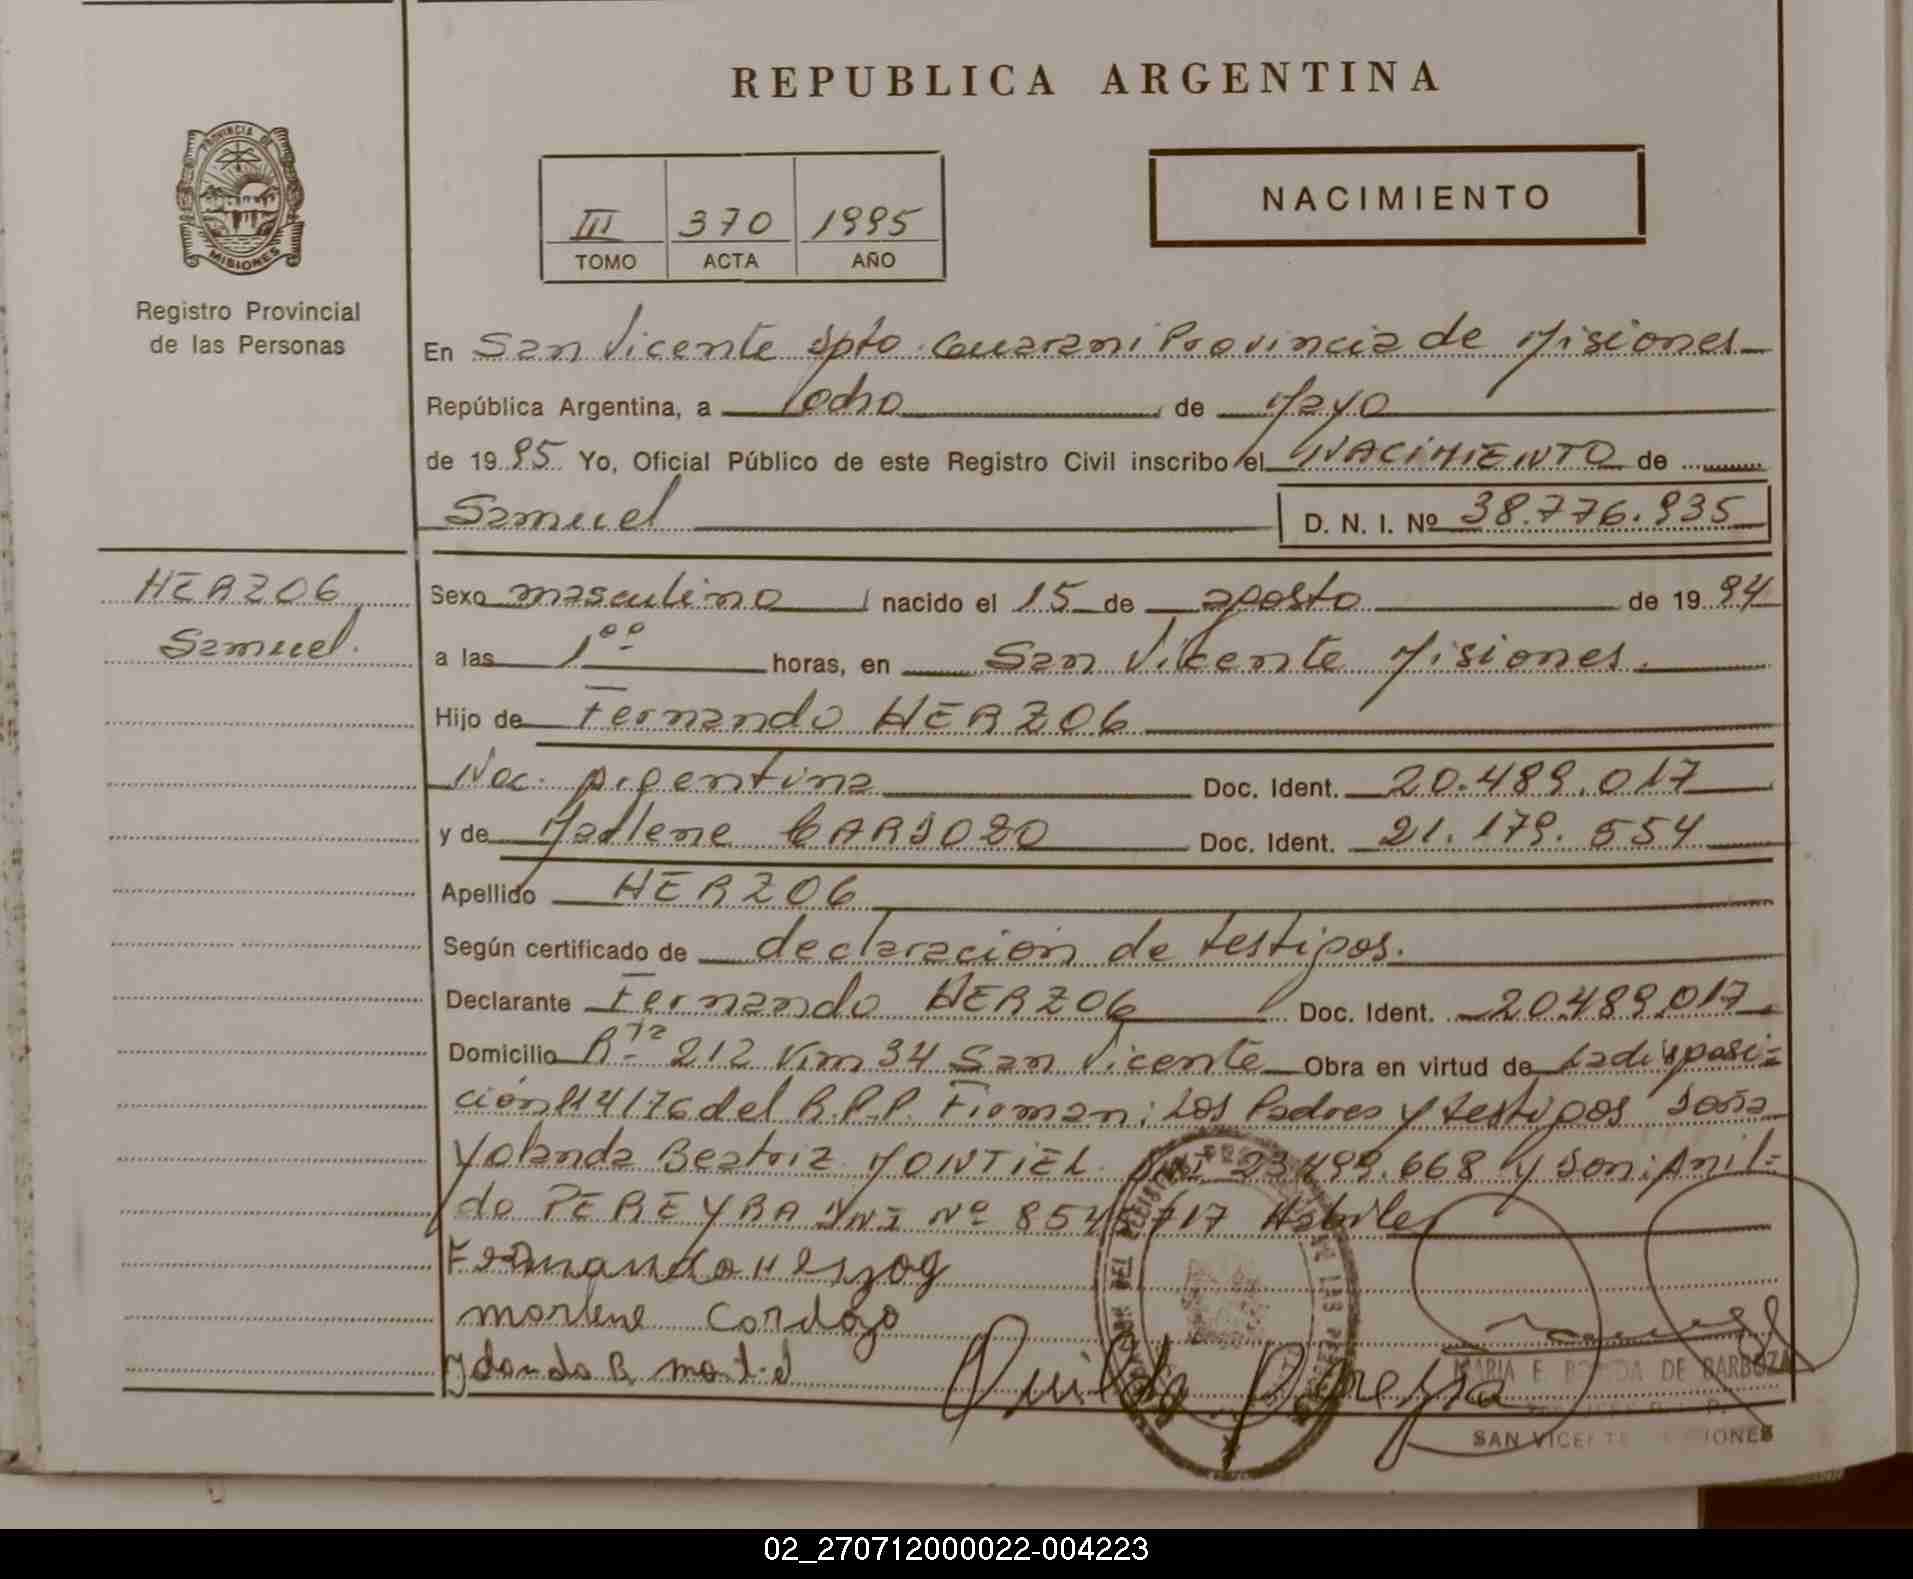 REPUBLICA ARGENTINA
PROVINCIA DE
MISIONES
Registro Provincial
de las Personas
III 370 1995
TOMO ACTA AÑO
NACIMIENTO
En San Vicente Dpto. Guarani Provincia de Misiones
República Argentina, a ocho de Mayo
de 1995 Yo, Oficial Público de este Registro Civil inscribo el NACIMIENTO de
Samuel D. N. I. Nº 38.776.935
HERZOG
Samuel.
Sexo masculino nacido el 15 de agosto de 1994
a las 1ºº horas, en San Vicente Misiones.
Hijo de Fernando HERZOG
Nac. Argentina Doc. Ident. 20.489.017
y de Marlene CARDOZO Doc. Ident. 21.179.554
Apellido HERZOG
Según certificado de declaración de testigos.
Declarante Fernando HERZOG Doc. Ident. 20.489.017
Domicilio Rta 212 Km 34 San Vicente Obra en virtud de La disposi=
ción 114/76 del R.P.P. Firman: Los Padres y testigos Doña
Yolanda Beatriz MONTIEL DNI 23.499.668 y Don: Anil=
do PEREYRA DNI Nº 854 717 Habiles
Fernando Herzog
Marlene Cardozo
Yolanda B
Anildo Pereyra
MARIA E DE BARBOZA
SAN VICENTE MISIONES
02_270712000022-004223